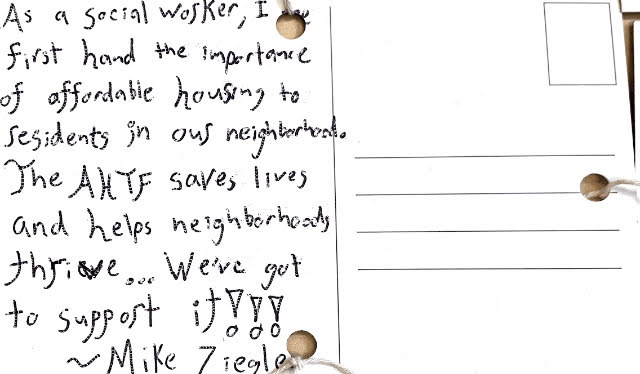 As a social worker, I
first hand the importance
of affordable housing to
residents in our neighborhood.
The AHTF saves lives
and helps neighborhoods
thrive... We've got
to support it!!!
~ Mike Ziegle